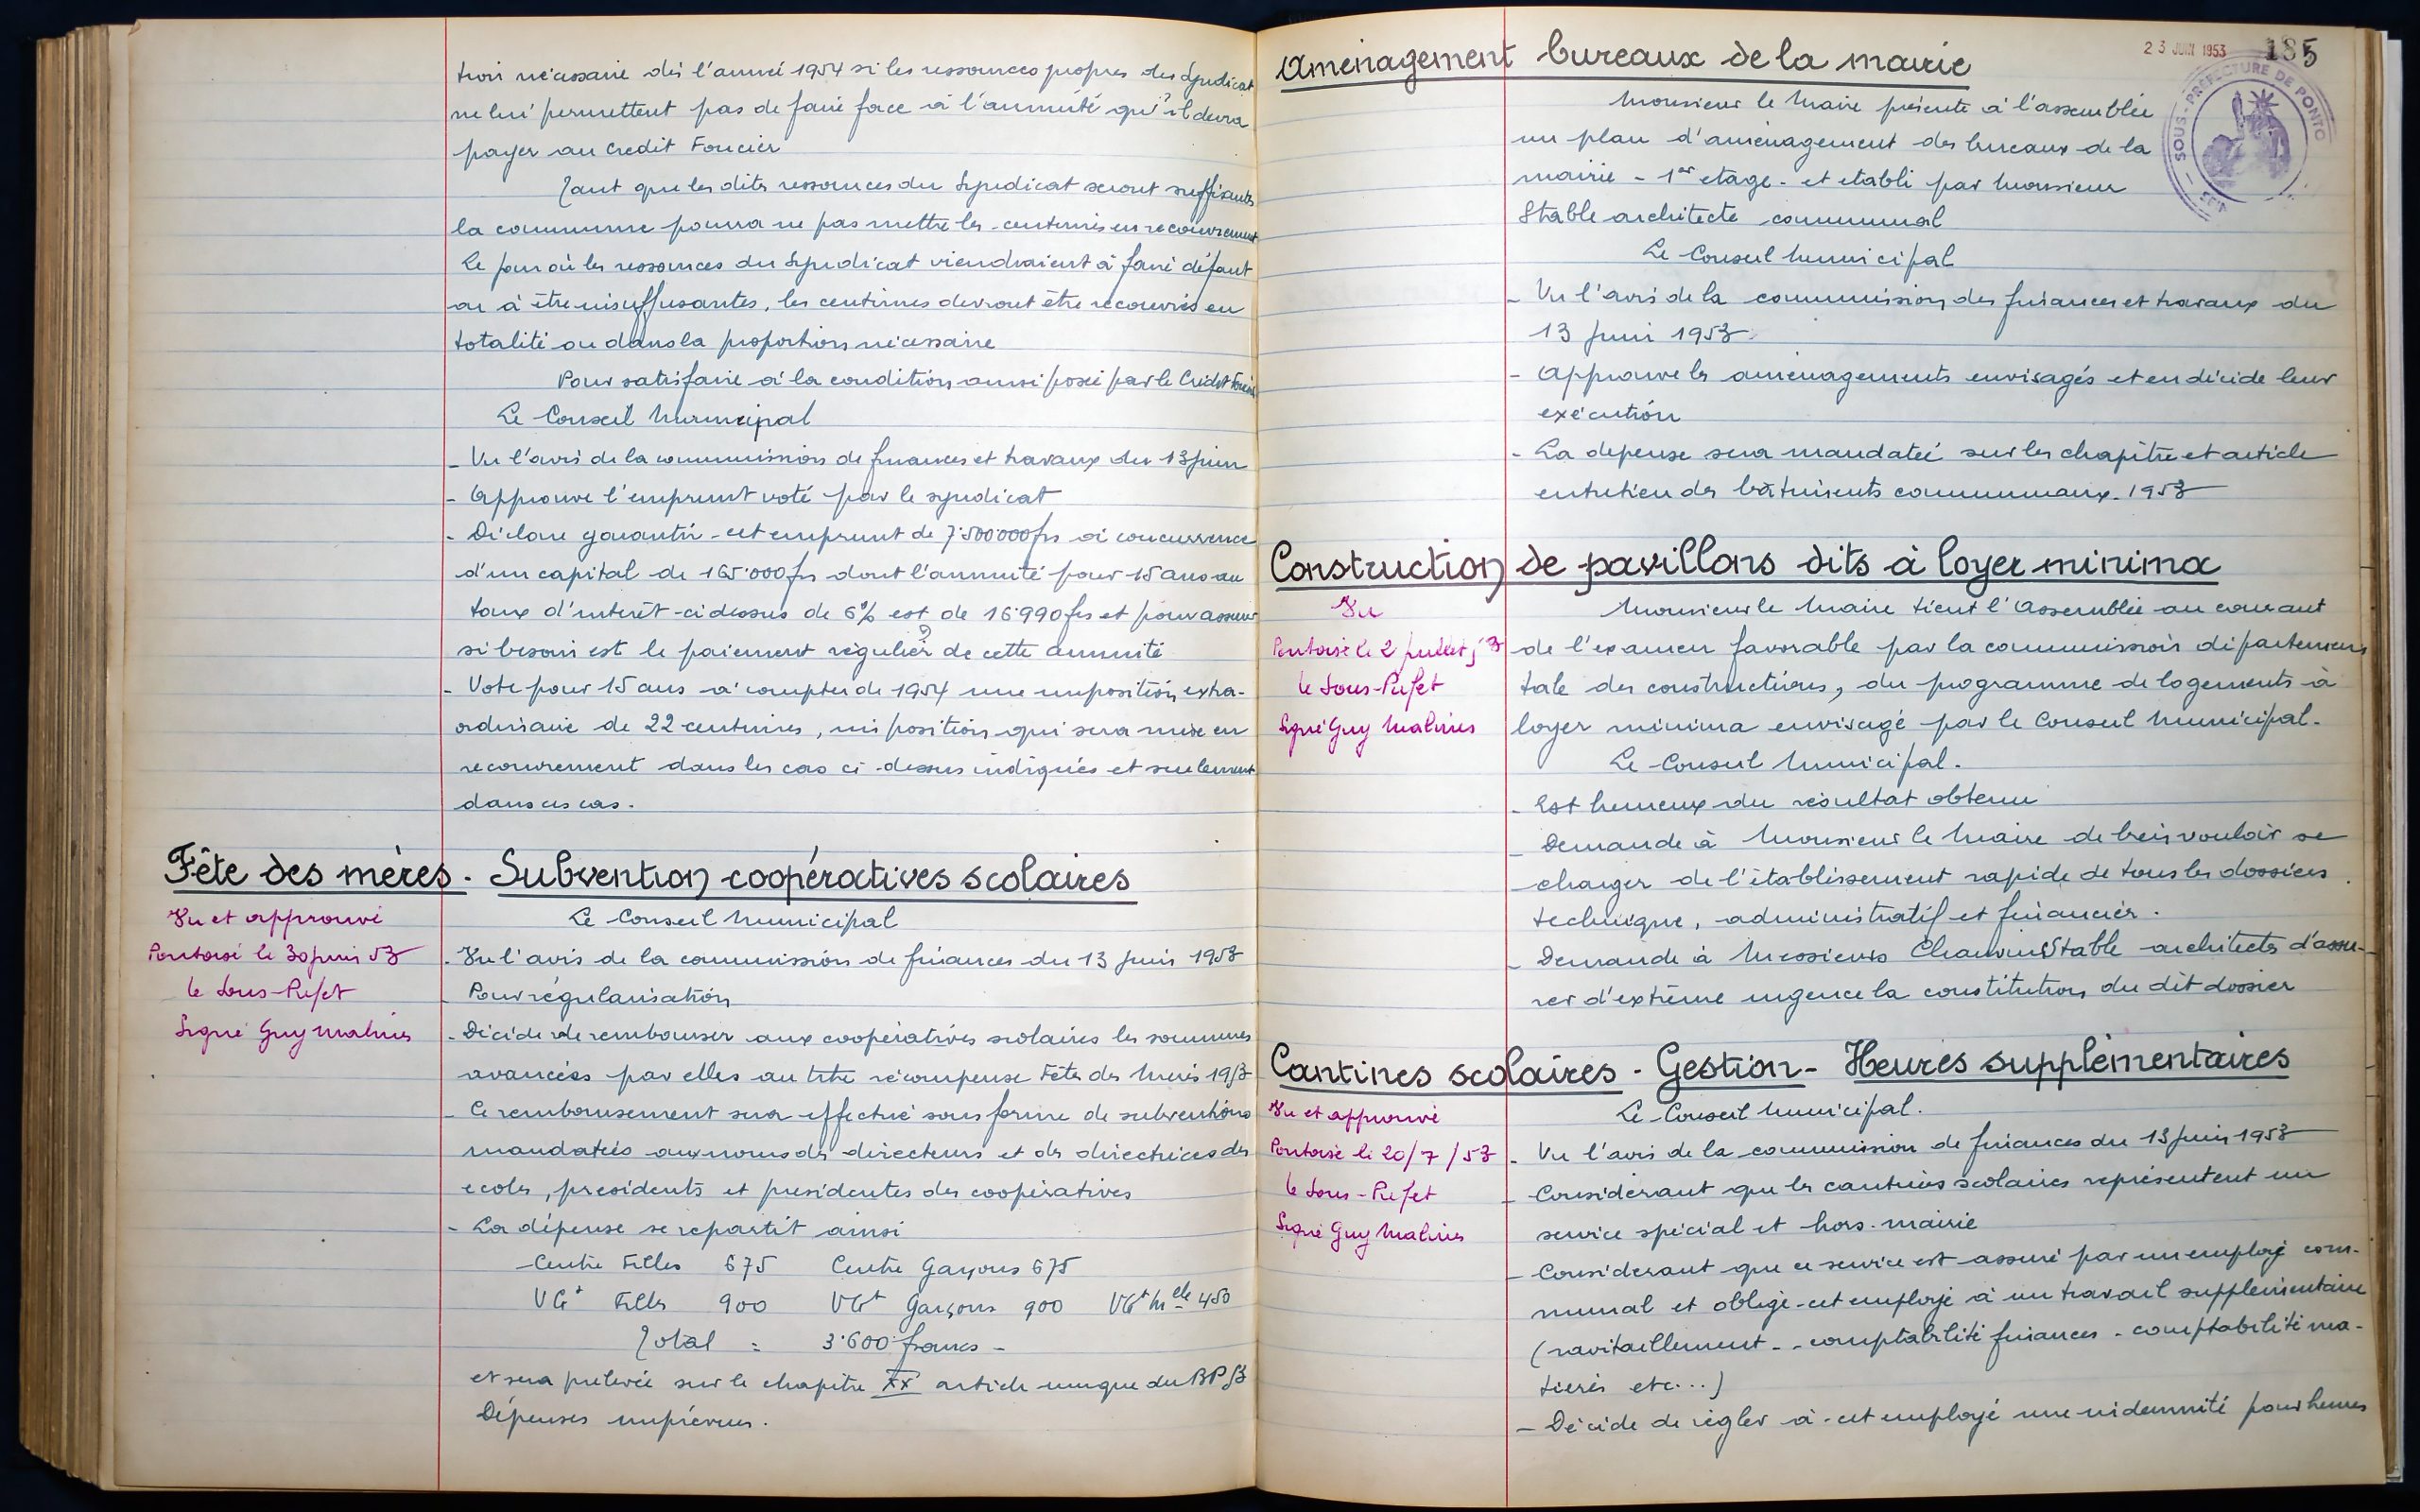 tion nécessaire dès l'année 1954 si les ressources propres du Syndicat
ne lui permettent pas de faire face à l'annuité qu'il devra
payer au Credit Foncier
Tant que les dites ressources du Syndicat seront suffisantes
la commune pourra ne pas mettre les centimes en recouvrement
Le jour où les ressources du Syndicat viendraient à faire défaut
ou à être insuffisantes, les centimes devront être recouvrés en
totalité ou dans la proportion nécessaire
Pour satisfaire à la condition ainsi posée par le Crédit Foncier
Le Conseil Municipal
- Vu l'avis de la commission de finances et travaux du 13 juin
- Approuve l'emprunt voté par le syndicat
- Déclare garantir cet emprunt de 7.500.000 frs à concurrence
d'un capital de 165.000 frs dont l'annuité pour 15 ans au
taux d'interêt ci dessus de 6% est de 16.990 frs et pour assurer
si besoin est le paiement régulier de cette annuité
- Vote pour 15 ans à compter de 1954 une imposition extra-
ordinaire de 22 centimes, imposition qui sera mise en
recouvrement dans les cas ci-dessus indiqués et seulement
dans ces cas.
Fête des mères. Subvention coopératives scolaires
Vu et approuvé
Pontoise le 30 juin 53
le Sous-Préfet
Signé Guy Malines
Le Conseil Municipal
- Vu l'avis de la commission de finances du 13 Juin 1953
Pour régularisation
- Décide de rembourser aux coopératives scolaires les sommes
avancées par elles au titre récompense Fête des Mères 1953
- Ce remboursement sera effectué sous forme de subventions
mandatées aux noms des directeurs et des directrices des
ecoles, presidents et présidentes des coopératives
- La dépense se répartit ainsi
Centre Filles 675 Centre Garçons 675
VGt Filles 900 VGt Garçons 900 VGt Melle 450
Total = 3.600 francs -
et sera prélevée sur le chapitre XX article unique du BP 53
Dépenses imprévues.
23 JUIN 1953
185
SOUS-PRÉFECTURE DE PONTO
Aménagement bureaux de la mairie
Monsieur le Maire présente à l'assemblée
un plan d'aménagement des bureaux de la
mairie - 1er etage - et etabli par Monsieur
Stable architecte communal
Le Conseil Municipal
- Vu l'avis de la commission des finances et travaux du
13 Juin 1953.
- Approuve les aménagements envisagés et en décide leur
exécution
- La dépense sera mandatée sur les chapitre et article
entretien des bâtiments communaux. 1953
Construction de pavillons dits à loyer minima
Vu
Pontoise le 2 juillet 53
le Sous-Préfet
Signé Guy Malines
Monsieur le Maire tient l'Assemblée au courant
de l'examen favorable par la commission départemen
tale des constructions, du programme de logements à
loyer minima envisagé par le Conseil Municipal.
Le Conseil Municipal.
- Est heureux du résultat obtenu
- Demande à Monsieur le Maire de bien vouloir se
charger de l'établissement rapide de tous les dossiers
technique, administratif et financier.
- Demande à Messieurs Stable architectes d'assu-
rer d'extrême urgence la constitution du dit dossier
Cantines scolaires - Gestion - Heures supplémentaires
Vu et approuvé
Pontoise le 20/7/53
le Sous-Préfet
Signé Guy Malines
Le Conseil Municipal.
- Vu l'avis de la commission de finances du 13 Juin 1953
- Considérant que les cantines scolaires représentent un
service spécial et hors-mairie
- Considerant que ce service est assuré par un employé com-
munal et oblige cet employé à un travail supplémentaire
(ravitaillement - comptabilité finances - comptabilité ma-
tières etc...)
- Décide de régler à cet employé une indemnité pour heures